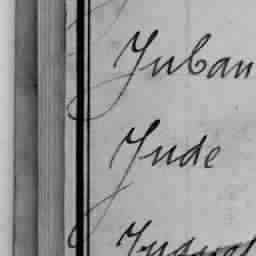 Juban
Jude